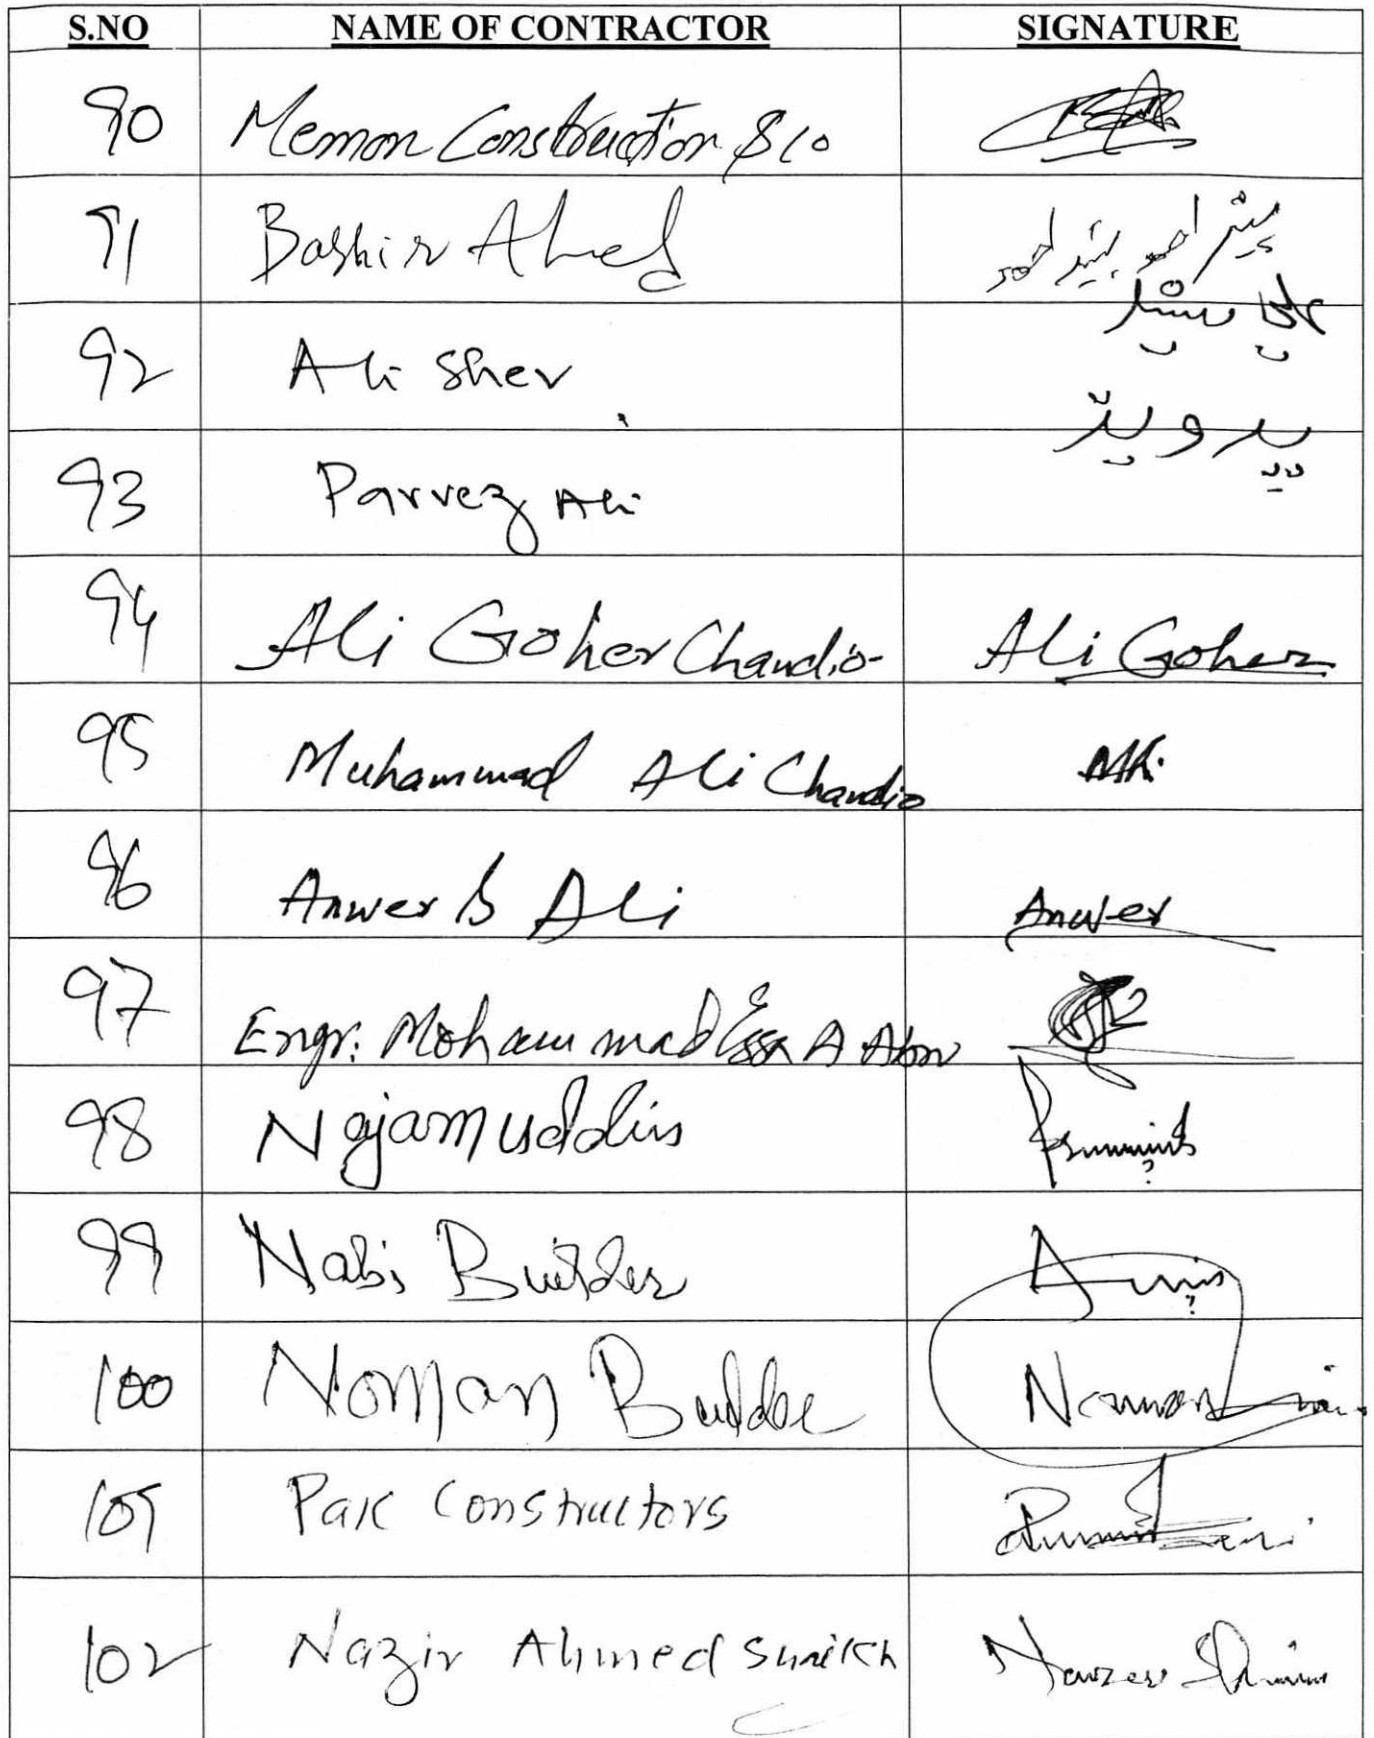 S.NO NAME OF CONTRACTOR SIGNATURE
90 Memon Construction & Co
91 Bashir Ahed بشير احمد بشير احمد
92 Ali Sher
93 Parvez Ali پرويز
94 Ali Goher Chandio Ali Goher
95 Muhammad Ali Chandio
96 Anwer Ali Anwer
97 Engr: Mohammad Essa A Abro
98 Najamuddin
99 Nabi Builder
100 Noman Builder Noman
101 Pak Constructors
102 Nazir Ahmed Shaikh